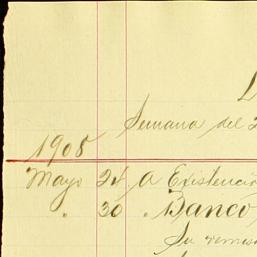 Semana del 2
1905
Mayo 24 A Existencia
" 30 " Banco
Su remis